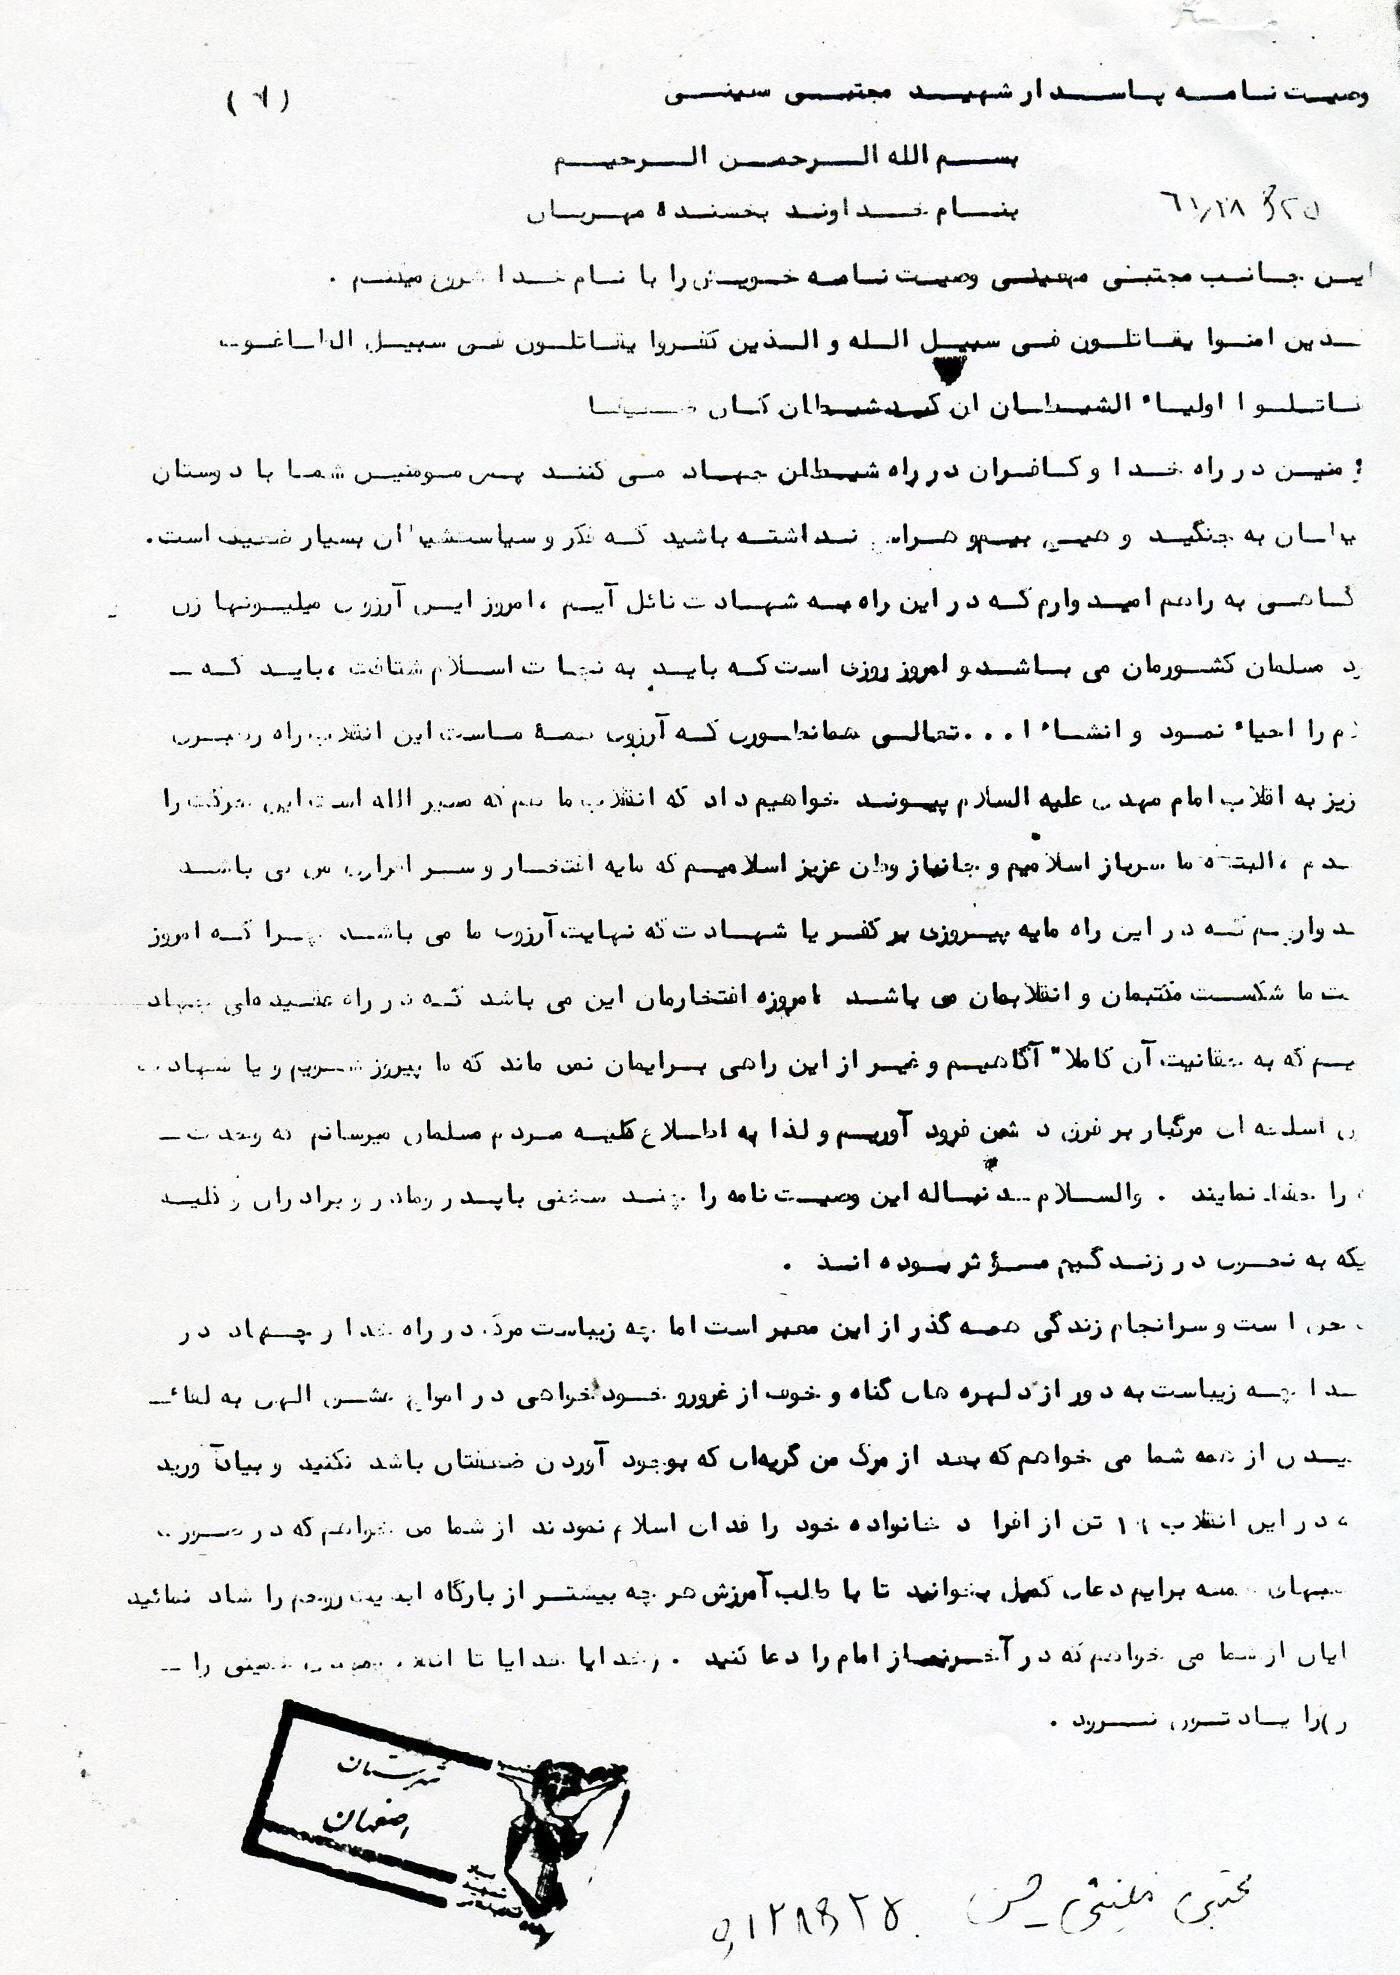 وصیت نامه پاسدار شهید مجتبی
(۱)
بسم الله الرحمن الرحیم
بنام خداوند بخشنده مهربان
این جانب مجتبی وصیت نامه خویش را با نام خدا شروع میکنم .
ـذین امنوا یقاتلون فی سبیل الله و الذین کفروا یقاتلون فی سبیل الطاغوت
ـاتلوا اولیاء الشیطان ان کید شیطان کان ضعیفا
منین در راه خدا و کافران در راه شیطان جهاد می کنند پس مومنین شما با دوستان
به جنگید و هیچ بیم و هراسی نداشته باشید که فکر و سیاست شیطان بسیار ضعیف است.
گاهی به راهم امیدوارم که در این راه به شهادت نائل آیم ، امروز این آرزوی میلیونها زن
مسلمان کشورمان می باشد و امروز روزی است که باید به نجات اسلام شتافت ، باید که ـ
را احیاء نمود و انشاء ا...تعالی همانطوری که آرزوی همهٔ ماست این انقلاب راه رهبری
زیز به انقلاب امام مهدی علیه السلام پیوند خواهیم داد که انقلاب ما هم که مسیر الله است این حرکت را
، البته ما سرباز اسلامیم و جانباز وطن عزیز اسلامیم که مایه افتخار و سر افرازی من می باشد
ـدواریم که در این راه مایه پیروزی بر کفر یا شهادت که نهایت آرزوی ما می باشد چرا که امروز
ما شکست مکتبمان و انقلابمان می باشد امروزه افتخارمان این می باشد که در راه عقیده‌ای جهاد
ـیم که به حقانیت آن کاملا" آگاهیم و غیر از این راهی برایمان نمی ماند که ما پیروز شویم و یا شهادت
مرگبار بر فرق دشمن فرود آوریم و لذا به اطلاع کلیه مردم مسلمان میرسانم که وحدت ـ
را حفظ نمایند . والسلام این وصیت نامه را چند سخنی با پدر و مادر و برادران و کلیه
یکه به نحوی در زندگیم مؤثر بوده اند .
حق است و سرانجام زندگی همه گذر از این معبر است اما چه زیباست مرگ در راه خدا و جهاد در
ـدا چه زیباست به دور از دلهره های گناه و خوف از غرور و خودخواهی در امواج عشق الهی به لقائـ
از همه شما می خواهم که بعد از مرگ من گریه‌ای که بوجود آوردن ضعفتان باشد نکنید و بیاد آورید
در این انقلاب تن از افراد خانواده خود را فدای اسلام نمودند از شما می خواهم که در صورت
برایم دعای کمیل بخوانید تا با طلب آمرزش هر چه بیشتر از بارگاه ابدیت روحم را شاد نمائید
از شما می خواهم که در آخر نماز امام را دعا کنید . خدایا خدایا تا انقلاب مهدی خمینی را ـ
را یادتون نرود .
شهرستان
اصفهان
مجتبی